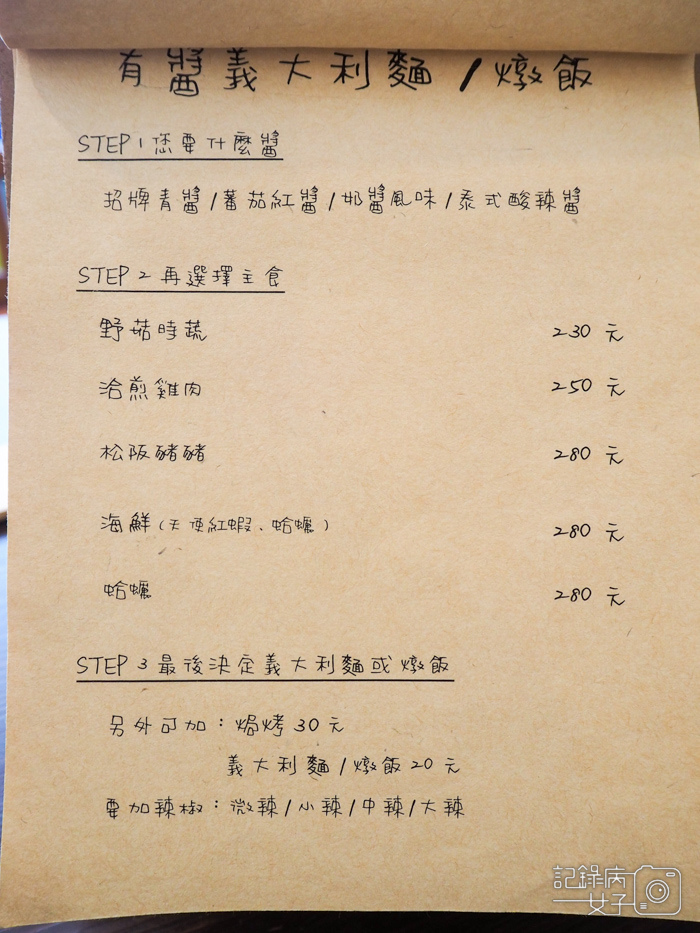 有醬義大利麵/燉飯
STEP 1 您要什麼醬
招牌青醬/蕃茄紅醬/奶醬風味/泰式酸辣醬
STEP 2 再選擇主食
野菇時蔬 230 元
洽煎雞肉 250 元
松阪豬豬 280 元
海鮮(天使紅蝦、蛤蠣) 280 元
蛤蠣 280 元
STEP 3 最後決定義大利麵或燉飯
另外可加:焗烤 30 元
義大利麵/燉飯 20 元
要加辣椒:微辣/小辣/中辣/大辣
記錄病
女子